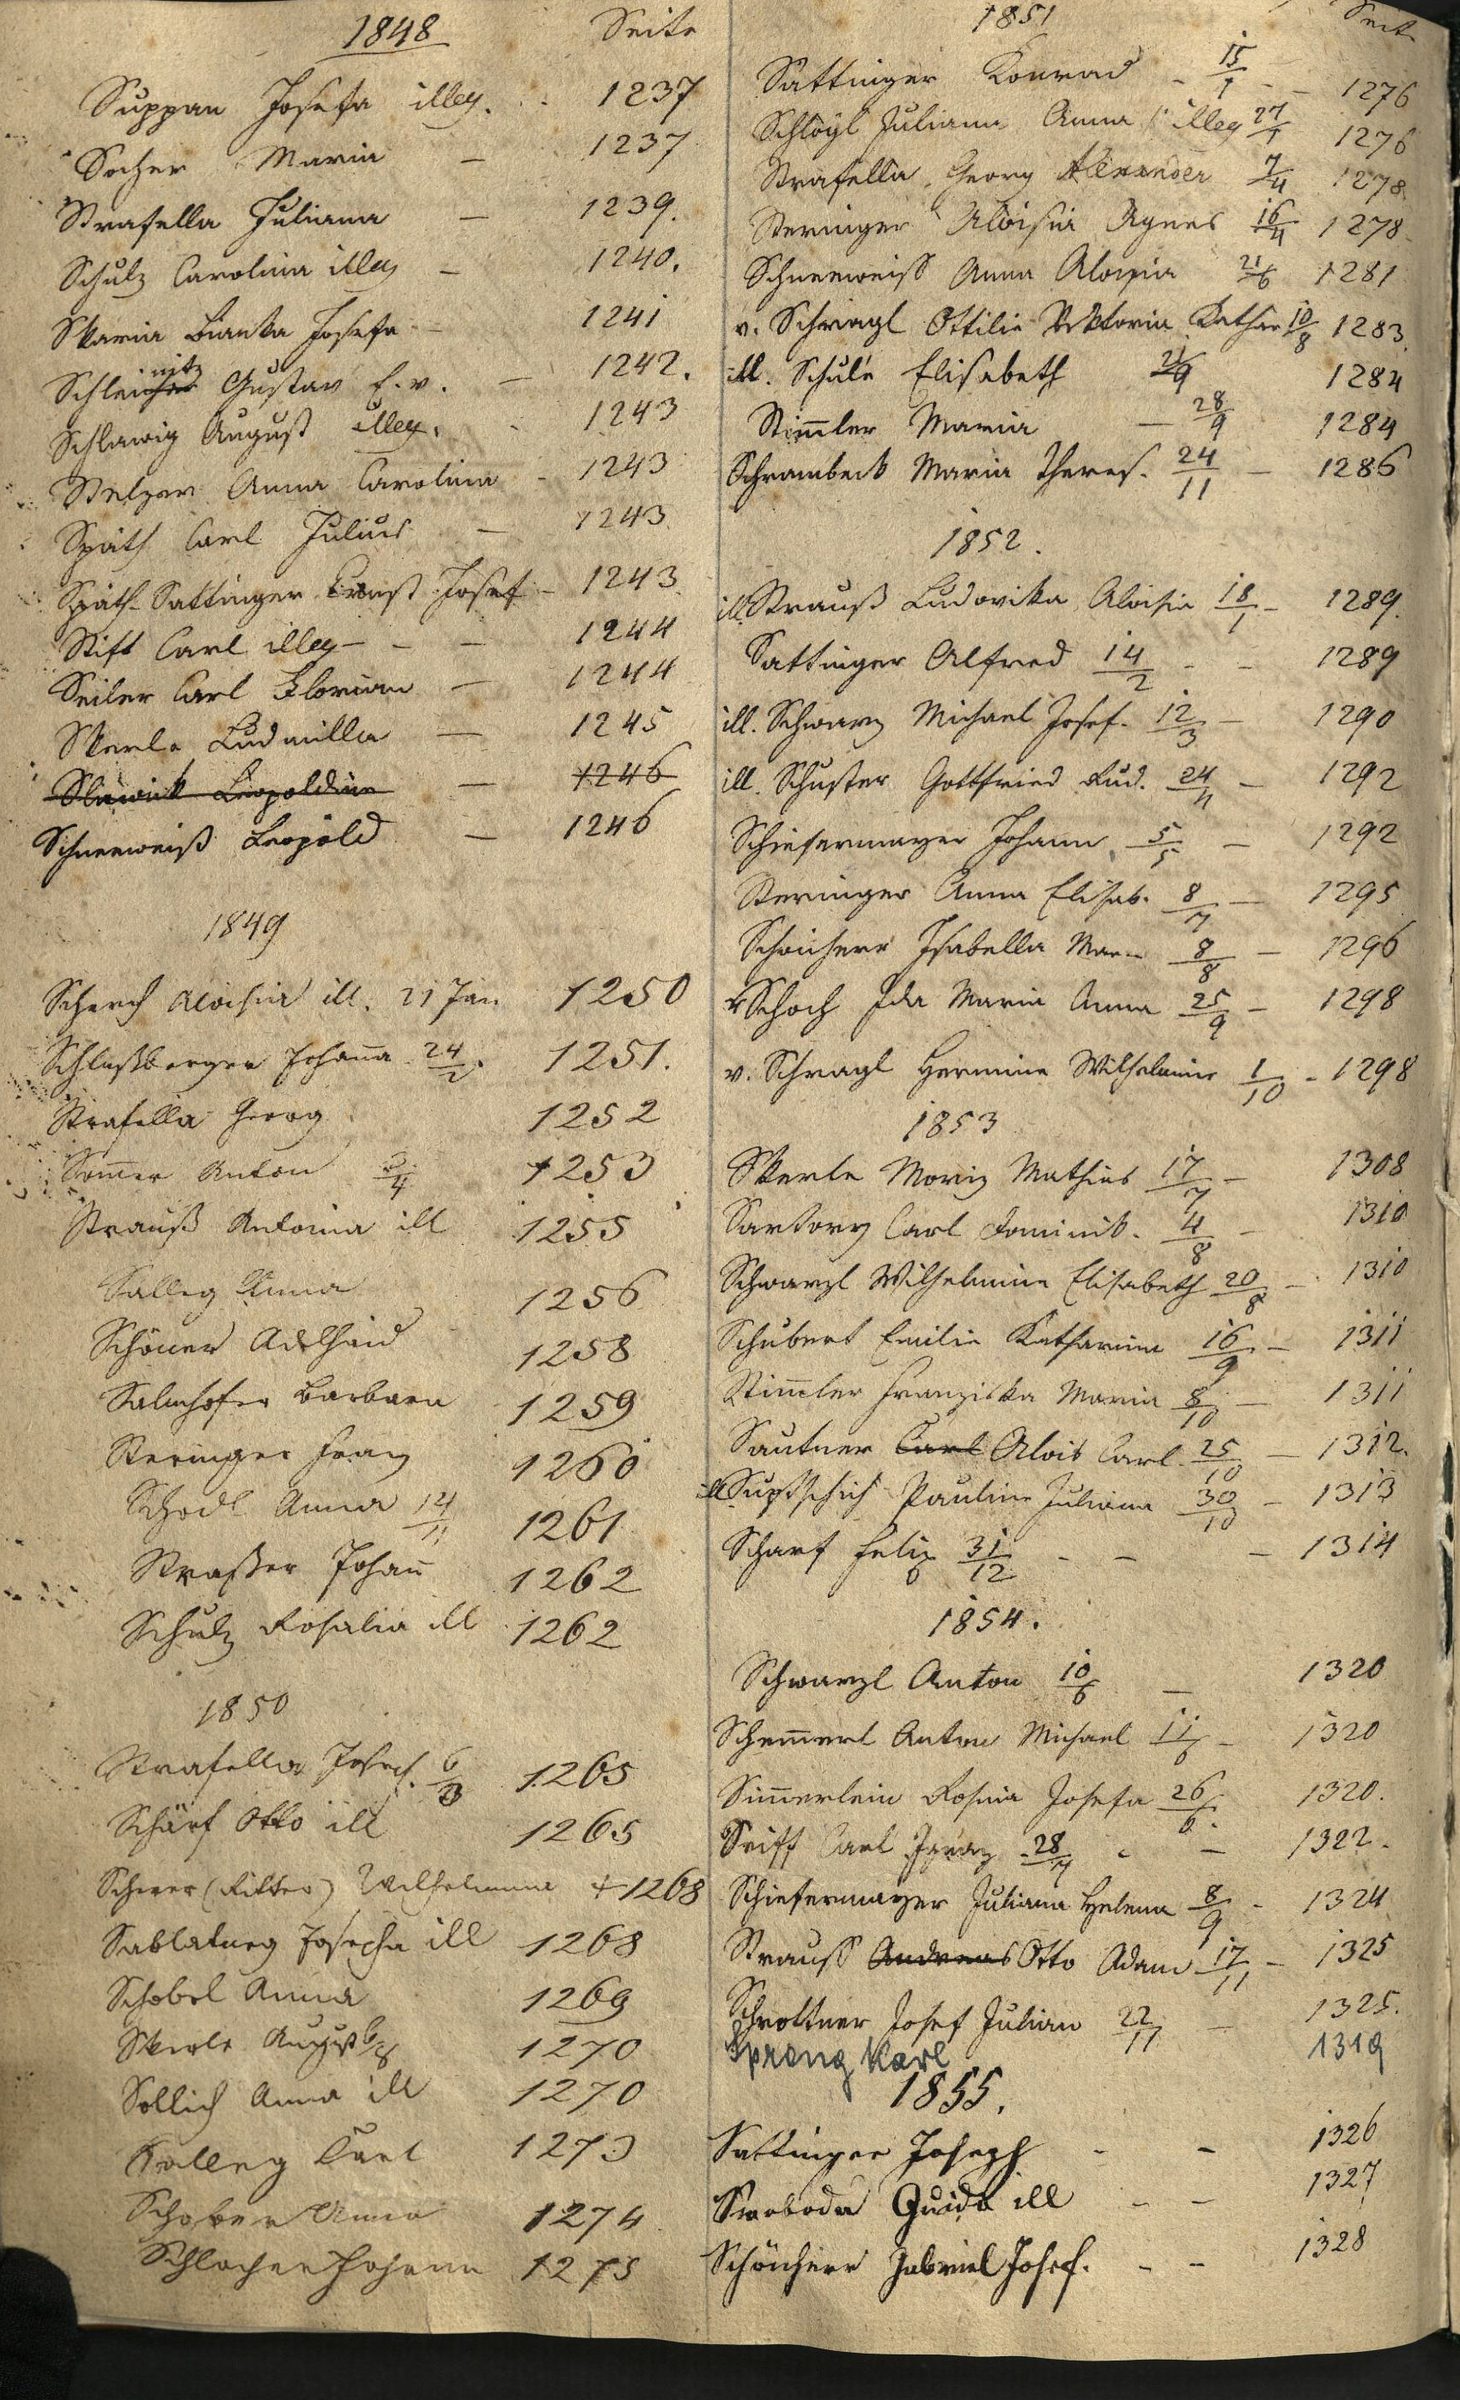 1848 Seite
Suppan Josefa illeg. 1237
Socher Maria — 1237
Strafella Juliana — 1239.
Schulz Carolina illeg — 1240.
Skaria Bianka Josefa — 1241
Schleinitz Gustav E. v. — 1242.
Schlawig August illeg. 1243
Stelzer Anna Carolina - 1243
Späth Carl Julius — 1243
Späth-Sattinger Ernst Josef - 1243
Stift Carl illeg - - — 1244
Seiler Carl Florian — 1244
Skerle Ludmilla — 1245
Slawick Leopoldine — 1246
Schneeweiß Leopold — 1246
1849
Scherch Aloisia ill. 21 Jan 1250
Schlaßberger Johanna 24/2. 1251.
Strafella Georg 1252
Somer Anton 3/4 1253
Strauß Antonia ill 1255
Salleg Anna 1256
Schöner Adelhaid 1258
Salmhofer Barbara 1259
Steringer Franz 1260
Schodl Anna 14/11 1261
Straßer Johann 1262
Schulz Rosalia ill 1262
1850
Strafella Josef. 6/3 1265
Schärf Otto ill 1265
Scherer (Ritter) Wilhelmine + 1268
Sablatneg Josepha ill 1268
Schobel Anna 1269
Skerle August 6/8 1270
Sollich Anna ill 1270
Salleg Carl 1273
Schober Anna 1274
Schlacher Johann 1275
1851 Seite
Sattinger Konrad - 15/1 - - 1276
Schlögl Juliana Anna illeg 27/1 1276
Strafella Georg Alexander 7/4 1278
Steringer Aloisia Agnes 16/4 1278
Schneeweiss Anna Aloysia 21/6 1281
v. Schragl Ottilie Viktoria Kathar 10/8 1283.
ill. Schule Elisabeth 21/9 1284
Stimler Maria — 28/9 1284
Schrambeck Maria Theres. 24/11 — 1286
1852.
ill. Strauß Ludovika Aloisia 18/1 - 1289.
Sattinger Alfred 14/2 - - 1289
ill. Schwarz Michael Josef. 12/3 — 1290
ill. Schuster Gottfried Rud. 24/4 — 1292
Schiefermayer Johann 5/5 — 1292
Steringer Anna Elisab. 8/7 — 1295
Schönherr Isabella Maria 8/8 — 1296
Schoch Ida Maria Anna 25/9 — 1298
v. Schragl Hermine Wilhelmine 1/10 - 1298
1853
Skerle Moriz Mathias 17/7 — 1308
Sartory Carl Dominik. 4/8 — 1310
Schwarzl Wilhelmine Elisabeth 20/8 — 1310
Schubert Emilie Katharina 16/9 — 1311
Stimler Franziska Maria 8/10 — 1311
Sautner Carl Alois Carl. 25/10 — 1312.
ill. Supstschich Pauline Juliana 30/10 — 1313
Scharf Felix 31/12 - — — 1314
1854.
Schwarzl Anton 10/6 — 1320
Schemerl Anton Michael 11/6 - 1320
Simerlein Rosina Josefa 26/6. 1320.
Seiff Carl Ignaz 28/7 - — 1322.
Schiefermayer Juliana Helena 8/9 - 1324
Strauss Andreas Otto Adam 17/11 — 1325
Schrottner Josef Julian 22/11 — 1325.
Spreng Karl 1319
1855.
Sattinger Joseph - - 1326
Swoboda Guido ill - - 1327
Schönherr Gabriel Josef. - - 1328